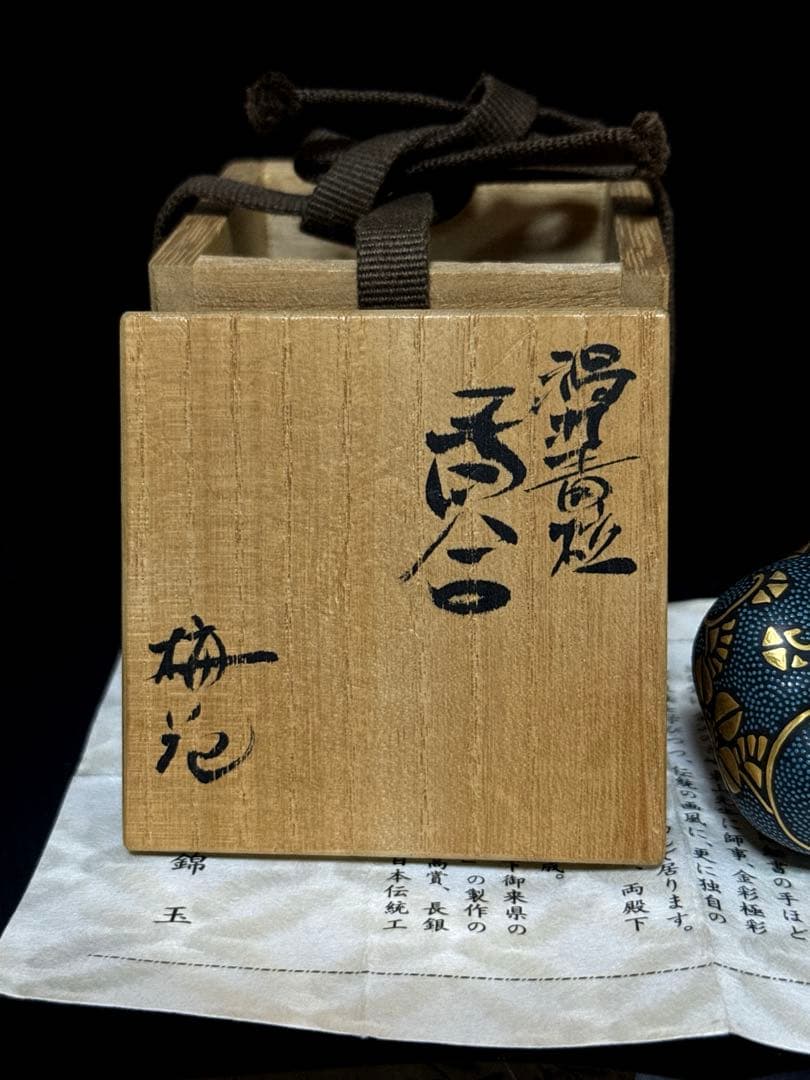 渦打青粒
香合
梅花
書の手ほど
に師事、金彩極彩
つ、伝統の画風に、更に独自の
居ります。
、両殿下
蔵。
下御来県の
の製作の
賞、長銀
日本伝統工
錦玉